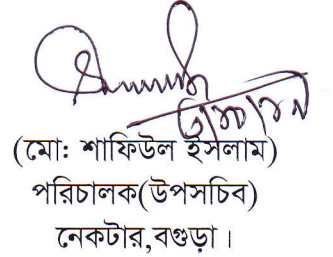 (মো: শাফিউল ইসলাম)
পরিচালক(উপসচিব)
নেকটার,বগুড়া।